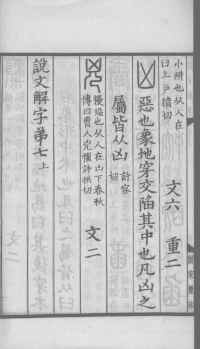 小阱也从人在
臼上戶切
文六 重二
凶 惡也象地穿交陷其中也凡凶之
屬皆从凶 許容
切
兇 擾恐也从人在凶下春秋
傳曰曹人兇懼許拱切
文二
說文解字弟七上